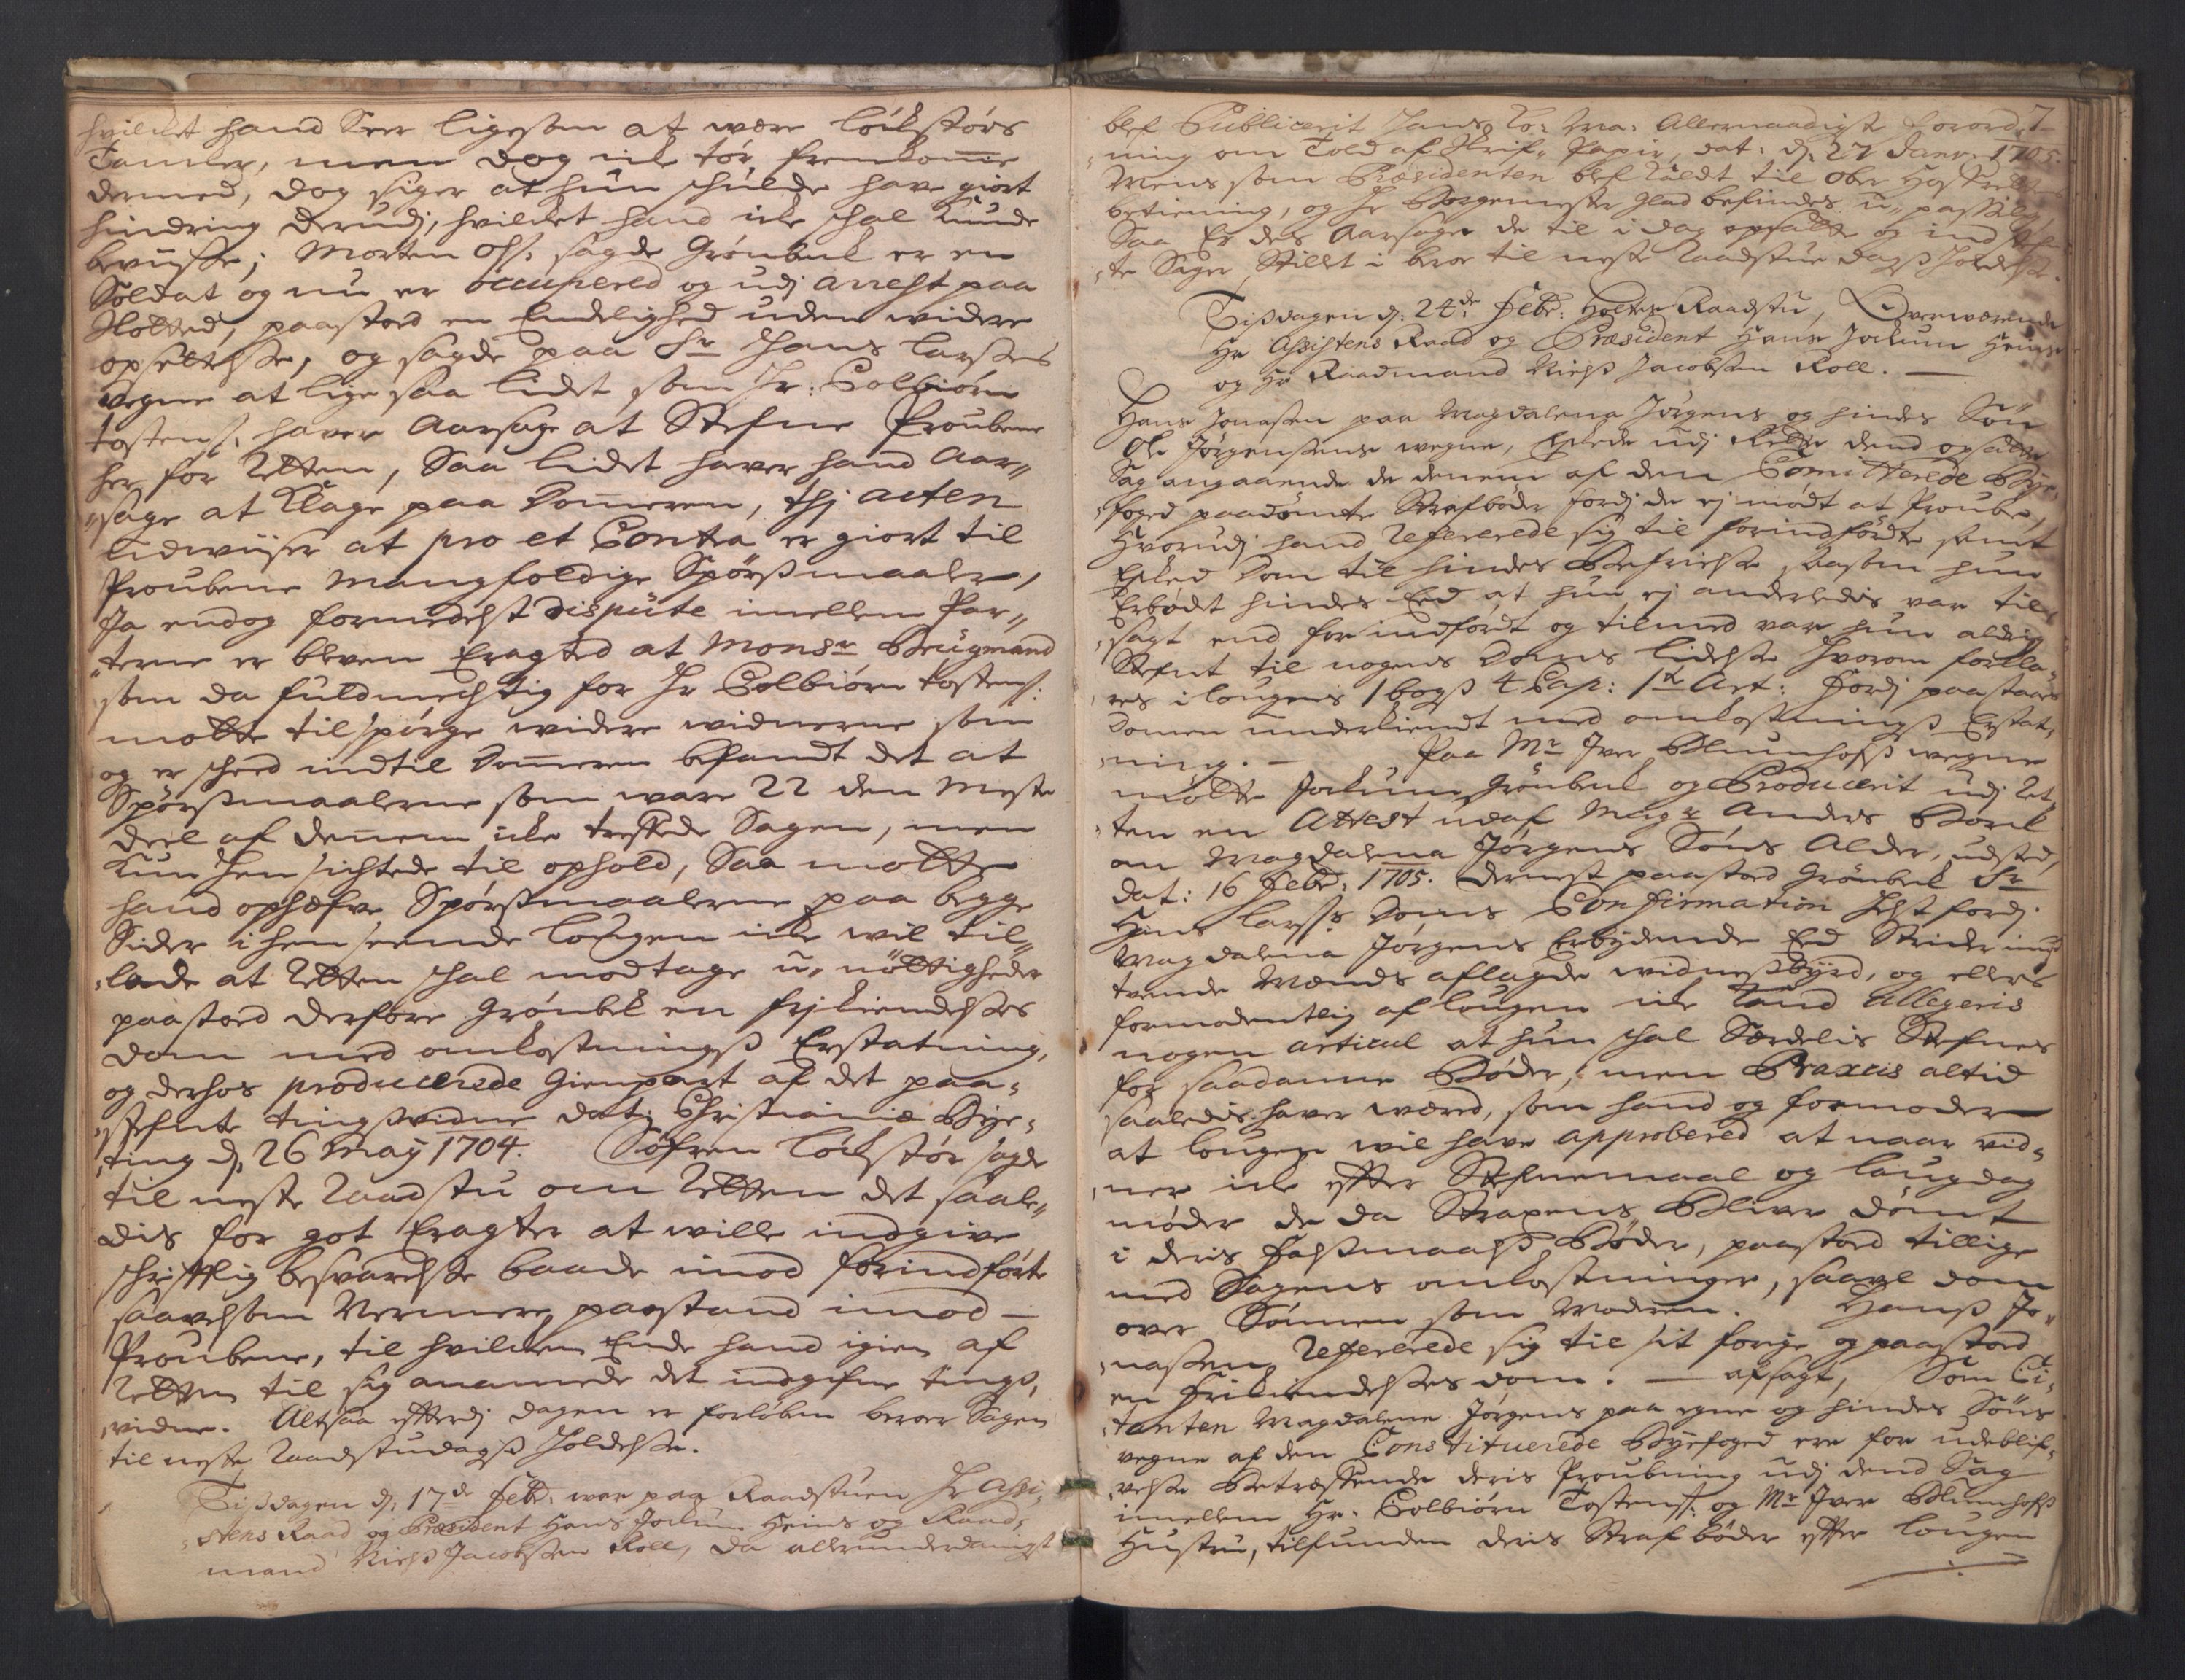 hvilket hand Seer ligesom at være Löckstörs
Tancker, men dog icke tör fremkomme
dermed, dog siger at hun schulde have giort
hindring derudj, hvilcket hand icke schal kunde
beviisse; Morten Ols: sagde Grönbeck er en
Soldat og nu er occupered og udj arrest paa
Slötted, paastod en Endelighed uden widere
opsettelsse, og sagde paa Sr Hans Larssens
vegne at lige saa lidet som Hr: Colbiörn
tostens: haver Aarsage at Stefne Proubene
her for Retten, Saa lidet haver hand Aar„
„sage at Klage paa Dommeren, thj acten
udwiiser at pro et Contra er giort til
Proubene Mangfoldige Spörssmaaler,
Ja endog formedelst dispüte imellem Par„
„terne er bleven Eragted at Monsr Brügmand
som da fuldmechtig for Hr Colbiörn tostens:
motte tilspörge widere widnerne som
og er scheed indtil Dommeren befandt det at
Spörssmaalerne som ware 22 den Meste
deel af dennem icke treffede Sagen, men
kun hen sichtede til ophold, Saa motte
hand ophæfve Spörssmaalerne paa begge
Sider i hen seende Lougen icke wil til„
„lade at Retten schal modtage u„nöttigheder
paastod derfore Grönbeck en frjkiendelsses
dom med omkostningss Erstatning,
og derhos producerede Gienpart af det paa„
„stefnte tingssvidne dat: Christianiæ Bye„
„ting d. 26 Maÿ 1704. Söfren Löckstör sagde
til neste Raadstu om Retten det saale„
dis for got Eragter at wille indgive
schrifftlig besvarelsse baade imod forindförte
saavelsom Vermere paastand imod —
Proubene, til hvilcken Ende hand igien af
Retten til sig anammede det indgifne tings„
„vidne. Altsaa efftterdj dagen er forlöben beroer Sagen
til neste Raadstudagss holdelsse.
Tissdagen d. 17de Febr: war paa Raadstuen Hr Assi„
„stens Raad og Præsident Hans Jockum Heins og Raad„
mand Nielss Jacobssen Roll, da allerunderdanigst
7
blef Publicerit Hans Ko: Ma: Allernaadigste forord„
„ning om Told af Skrif„ Papir, dat: d. 27 Janv: 1705.
Mens som Præsidenten blef kaldt til Ober Hof Rettens
betiening, og Hr Borgemester Glad befindes u„passelig,
Saa Er des Aarsage de til i dag opsatte og ind stef„
„te Sager Stillet i bero til neste Raadstue dagss holdelsse.
Tissdagen d. 24de Febr: Holten Raadstu, Overwærende
Hr Assistens Raad og Præsident Hans Jockum Heins
og Hr Raadmand Nielss Jacobssen Roll. —
Hans Jonassen paa Magdalena Jörgens og hindes Sön
Ole Jörgenssens wegne, Eskede udj Rette dend opsatte
Sag angaaende de dennem af den Committerede Bye„
„foged paadömte Strafböder fordj de ej mödt at Proube,
Hvorudj hand Refererede sig til forindförte samt
Esked Dom til hindes Befrielsse saasom hun
Erbödt hindes Eed at hun ej anderledis var til„
„sagt end forindfördt og tilmed var hun aldrig
Stefnt til nogens Doms lidelsse hvorom forkla„
„res i lougens 1 bogs 4 Cap: 1te Art: Fordj paastaaes
Domen underkiendt med omkostningss Erstat„
„ning. — Paa Mr Iver Blumhofss wegne
mötte Jockum Grönbeck og Producerit udj Ret„
„ten en Attest udaf Magr Anders Borck
om Magdalena Jörgens Söns Alder, udsted,
dat: 16 Febr: 1705. Dernest paastod Grönbeck Sr
Hans Larss: Doms Confirmation Helst fordj
Magdalena Jörgens Erbydende Eed Strider imod
tvende Mænds aflagde widnessbyrd, og ellers
formodentlig af lougen icke kand allegeris
nogen articul at hun schal Særdelis Stefnes
for saadanne Böder, men Praxis altid
saaledis haver wæred, som hand og formoder
at lougen wil have approbered at naar vid„
„ner icke effter Stefnemaal og laugdag
möder de da Straxens Bliver dömt
i deris Falssmaalss Böder, paastod tillige
med Sagens omkostninger, saavel dom
over Sönnen som Moderen. Hanss Jo„
„nassen Refererede sig til sit forige og paastod
en frikiendelsses dom. — afsagt, Som Ci„
„tanten Magdalene Jörgens paa egne og hindes Söns
vegne af den Constituerede Byefoged ere for udeblif„
„velsse Betræffende deris Proubning udj dend Sag
imellem Hr. Colbiörn Tostenss: og Mr Iver Blumhofss
Hustru, tilfunden deris Straf böder effter lougen